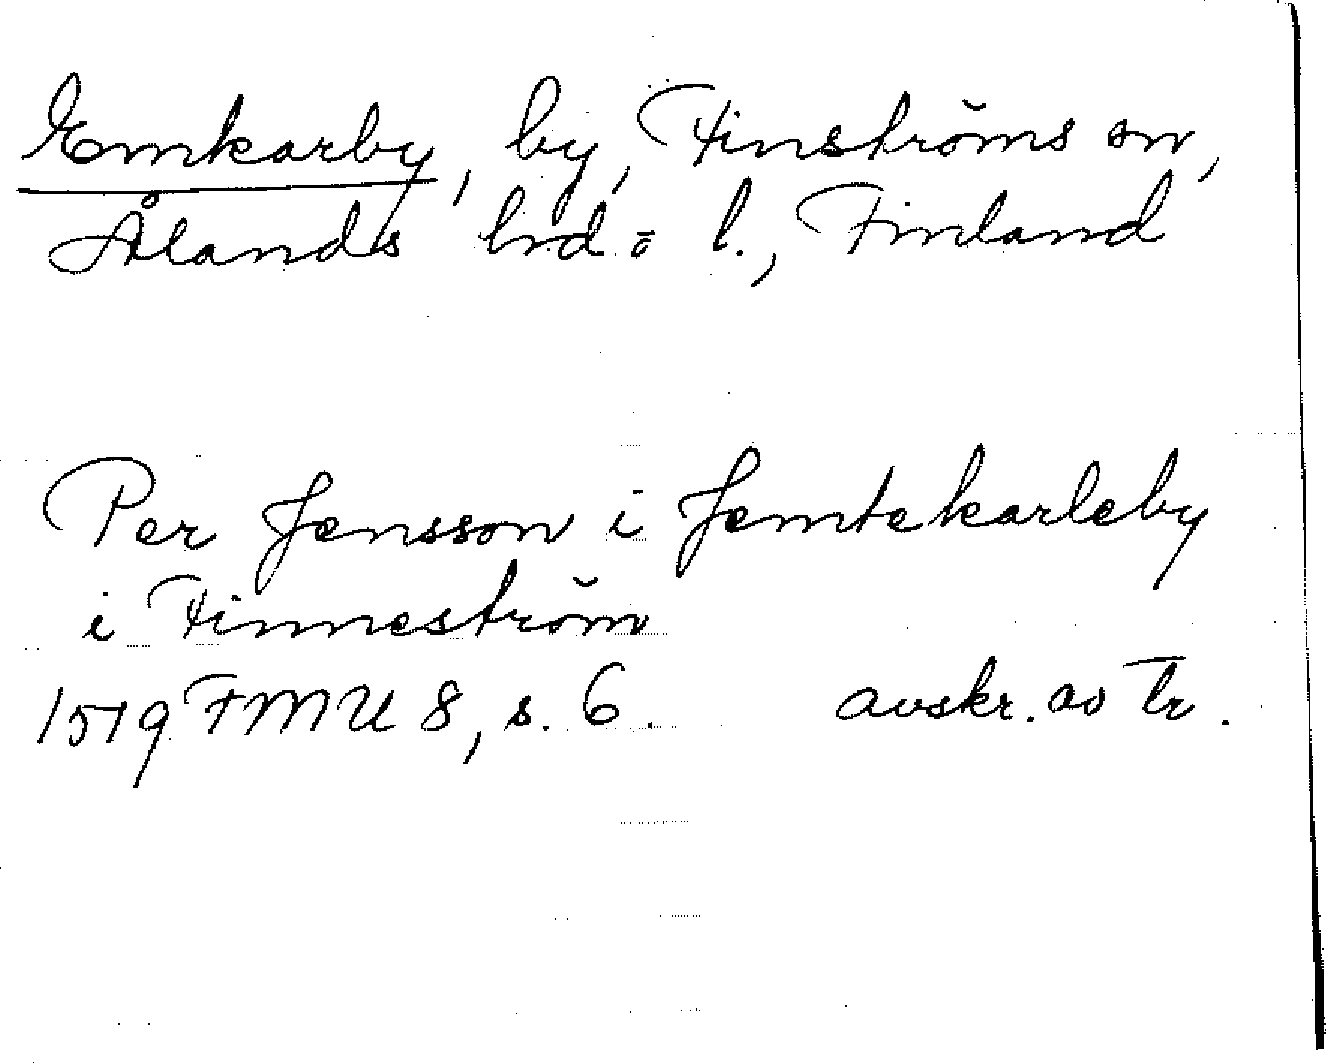 Emkarby, by, Finströms sn,
Ålands hd o l., Finland
Per Jensson i Jemtekarleby
i Finneström
1519 FMU 8, s. 6. avskr. av tr.